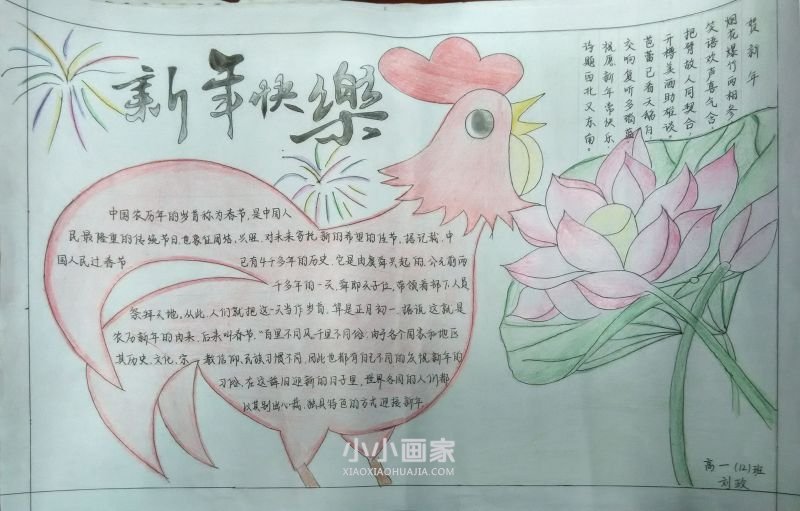 新年快樂
贺新年
烟花爆竹两相参，
笑语欢声喜气含。
把臂故人同契合，
开樽美酒助雄谈。
芭蕾已看天鹅月，
交响复听多瑙蓝。
祝愿新年常快乐，
诗题西北又东南。
中国农历年的岁首称为春节，是中国人
民最隆重的传统节日，也象征团结、兴旺，对未来寄托新的希望的佳节。据记载，中
国人民过春节 已有4千多年的历史，它是由虞舜兴起的。公元前两
千多年的一天，舜即天子位，带领着部下人员
祭拜天地。从此，人们就把这一天当作岁首，算是正月初一。据说这就是
农历新年的由来，后来叫春节。"百里不同风，千里不同俗"，由于各个国家和地区
其历史、文化、宗 教信仰、民族习惯不同，因此也都有自己不同的庆祝新年的
习俗。在这辞旧迎新的日子里，世界各国的人们都
以其别出心裁、独具特色的方式迎接新年
小小画家
XIAOXIAOHUAJIA.COM
高一(12)班
刘政